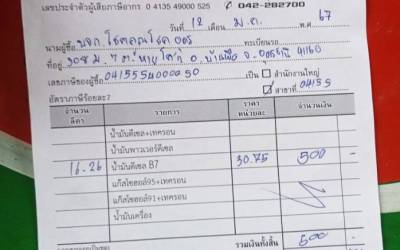 เลขประจำตัวผู้เสียภาษีอากร 0 4135 49000 525 042-282700
วันที่ 12 เดือน ม.ค. พ.ศ. 67
นามผู้ซื้อ หจก. โชคคูณโชค อุดร ทะเบียนรถ
ที่อยู่ 308 ม. 7 ต. หาย โศก อ. บ้านผือ จ. อุดรธานี 41160
เลขภาษีของผู้ซื้อ 0415554000050 เป็น สำนักงานใหญ่
สาขาที่ 04155
อัตราภาษีร้อยละ 7
จำนวน ลิตร รายการ ราคา หน่วยละ จำนวนเงิน
น้ำมันดีเซล+เทครอน
น้ำมันพาวเวอร์ดีเซล
16.26 น้ำมันดีเซล B7 30.75 500 -
แก๊สโซฮอล์95+เทครอน
แก๊สโซฮอล์91+เทครอน
น้ำมันเครื่อง
รวมเงินทั้งสิ้น 500 -